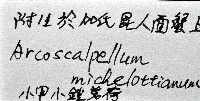 附生於加氏昆人面蟹上
Arcoscalpellum
michelottianum
小甲小鎧茗荷